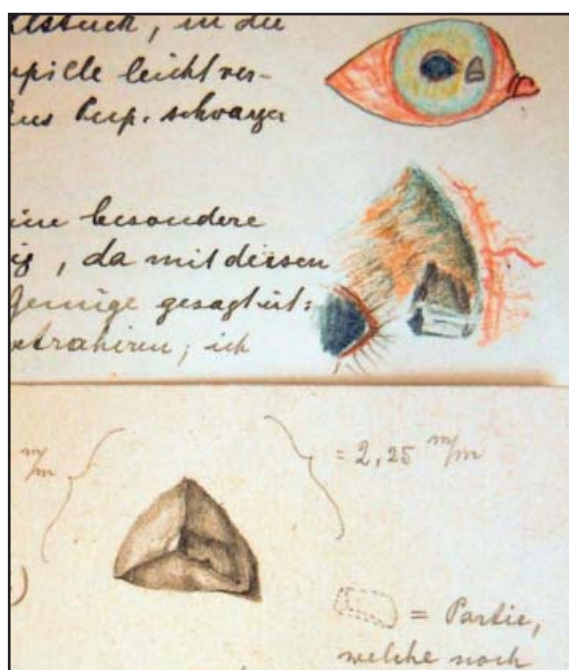 in die
pille leicht ver-
Pup. schwarzer
ine besondere
ig, da mit diesen
jenige gesagt ist:
xtrahiren; ich
m/m
= 2,25 m/m
= Partie,
welche noch